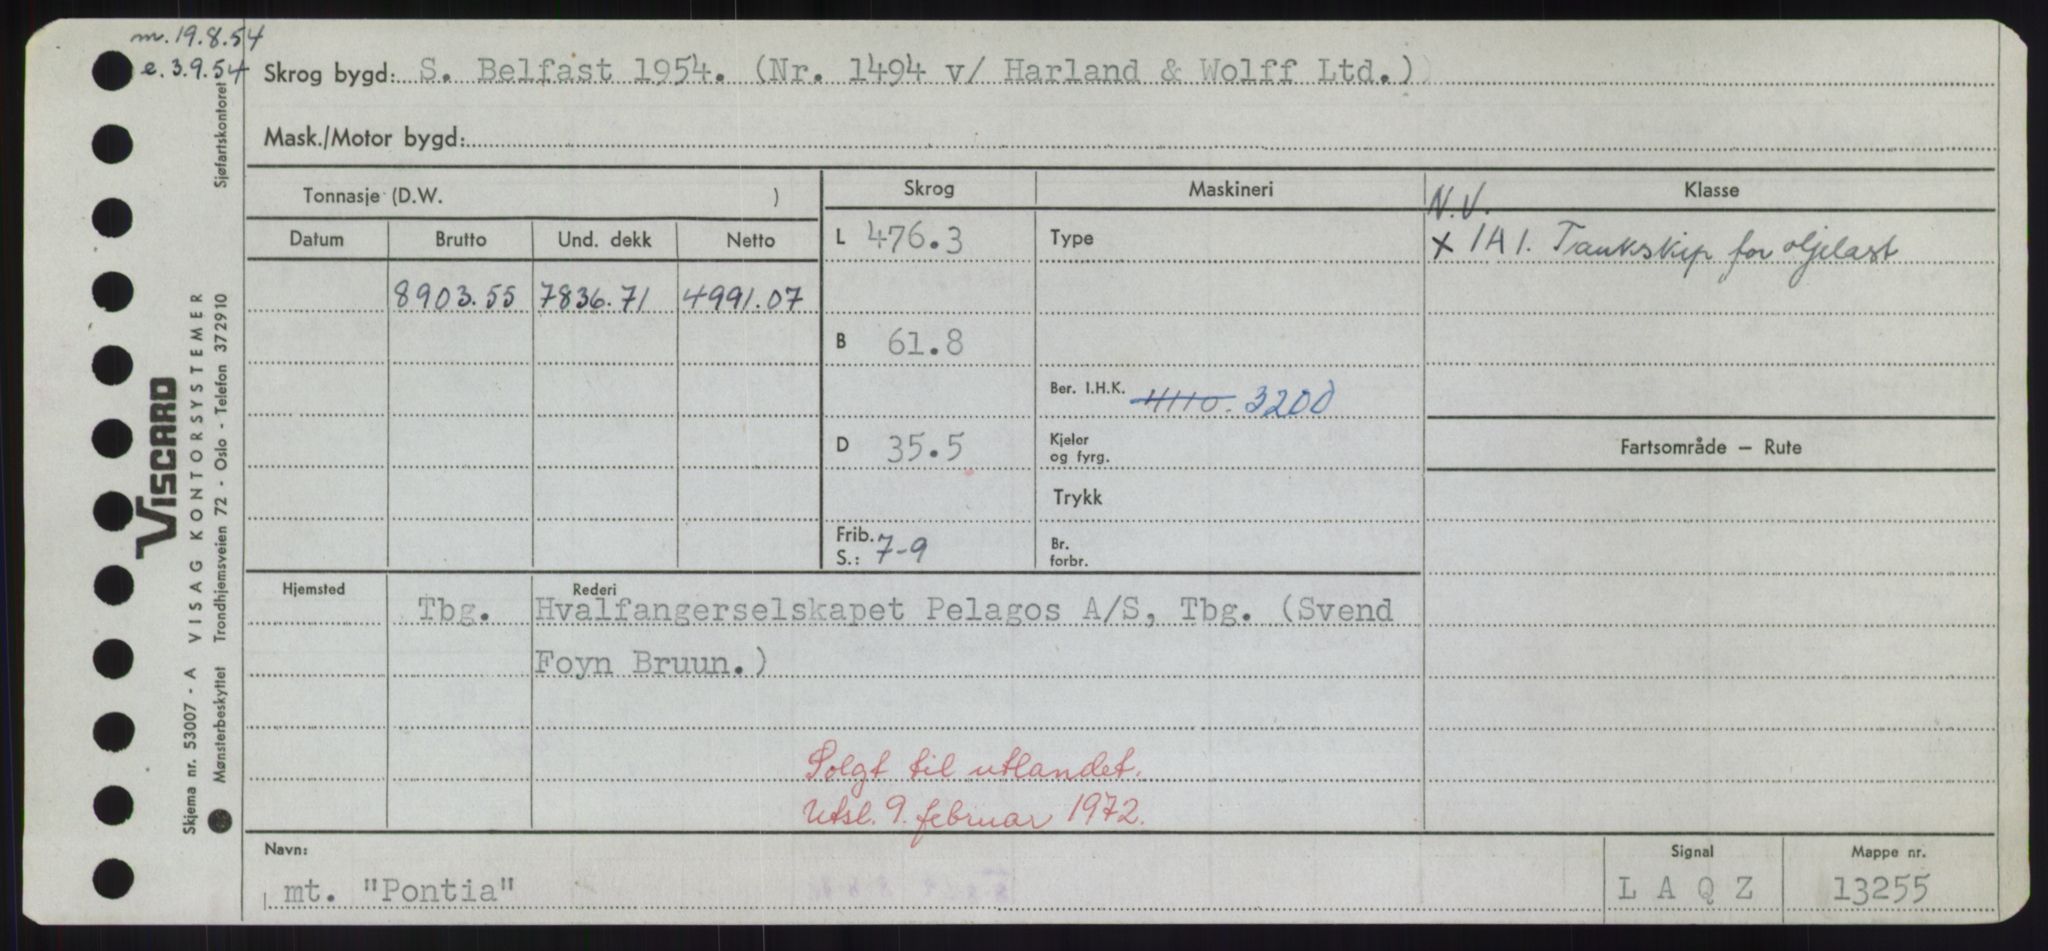 m. 19.8.54
e. 3.9.54
Skrog bygd: S. Belfast 1954. (Nr. 1494 v/ Harland & Wolff Ltd.)
Mask./Motor bygd:
Tonnasje (D.W. )
Skrog
Maskineri
Klasse
Datum
Brutto
Und. dekk
Netto
8903.55
7836.71
4991.07
L 476.3
B 61.8
D 35.5
Frib.
S.: 7-9
Type
Ber. I.H.K. 4110. 3200
Kjeler
og fyrg.
Trykk
Br.
forbr.
N.V.
+ 1A1. Tankskip for oljelast
Fartsområde — Rute
Hjemsted
Tbg.
Rederi
Hvalfangerselskapet Pelagos A/S, Tbg. (Svend
Foyn Bruun.)
Solgt til utlandet.
Utsl. 9. februar 1972.
Navn:
mt. "Pontia"
Signal
L A Q Z
Mappe nr.
13255
VISCARD
Skjema nr. 53007 - A VISAG KONTORSYSTEMER
Mønsterbeskyttet Trondhjemsveien 72 - Oslo - Telefon 372910
Sjøfartskontoret